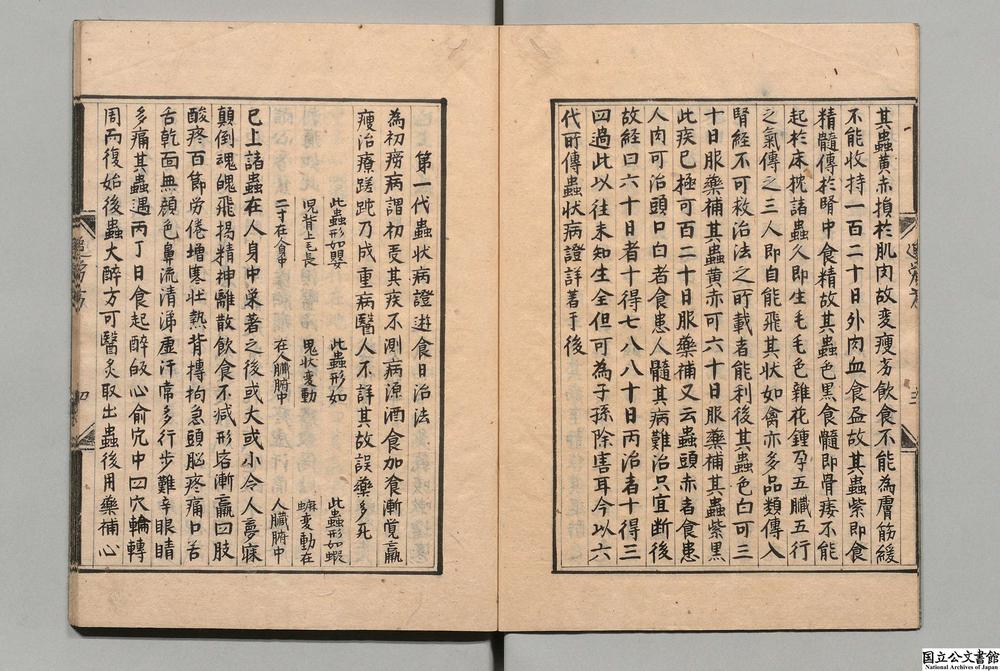 其蟲黄赤損於肌肉故変瘦劣飲食不能為膚筋緩
不能收持一百二十日外肉血食盃故其蟲紫即食
精髓傳於腎中食精故其蟲色黒食髓即骨痿不能
起於床枕諸蟲人即生毛毛色雜花鍾孕五臓五行
之氣傳之三人即自能飛其状如禽亦多品類傳入
腎経不可救治法之所載者能利後其蟲色白可三
十日服藥補其蟲黄赤可六十日服藥補其蟲紫黒
此疾已極可百二十日服藥補又云蟲頭赤者食患
人肉可治頭口白者食患人髓其病難治只宜断後
故経曰六十日者十得七八八十日丙治者十得三
四過此以往未知生全但可為子孫除害耳今以六
代所傳蟲状病證詳著于後
第一代蟲状病證遊食日治法
此蟲形如嬰
児背上毛長
二寸在人身中
此蟲形如
鬼状変動
在人臓腑中
此蟲形如蝦
蟆変動在
人臓腑中
為初癆病謂初受其疾不測病源酒食加飡漸覚羸
瘦治療蹉跎乃成重病醫人不詳其故誤藥多死
已上諸蟲在人身中巣著之後或大或小令人夢寐
顛倒魂魄飛揚精神離散飲食不減形容漸羸四肢
酸疼百節労倦増寒壮熱背摶拘急頭腦疼痛口舌
舌乾面無顔色鼻流清涕虚汗常多行歩艱辛眼睛
多痛其蟲遇丙丁日食起醉歸心俞穴中四穴輪轉
周而復始後蟲大醉方可醫灸取出蟲後用藥補心
四
国立公文書館
National Archives of Japan